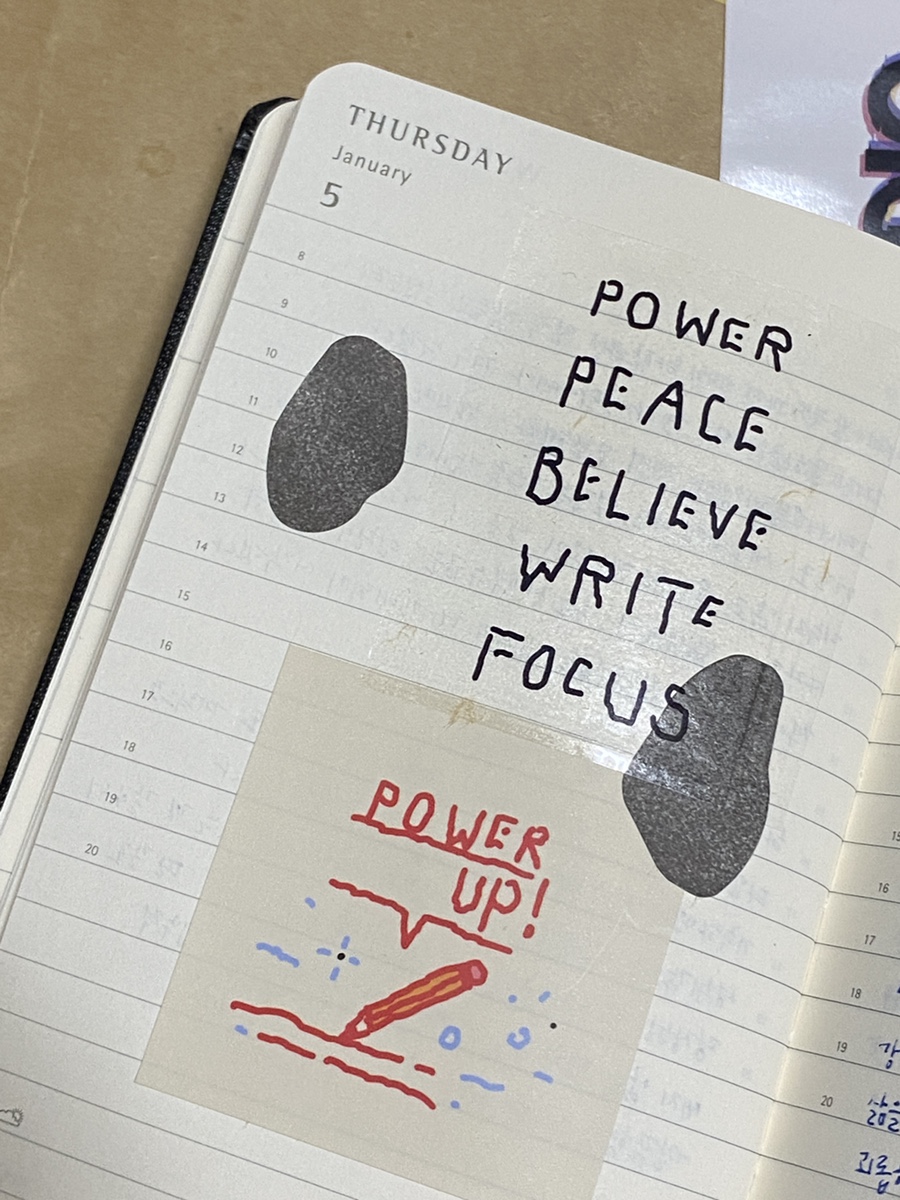 THURSDAY
January
5
8
9
10
11
12
13
14
15
16
17
18
19
20
POWER
PEACE
BELIEVE
WRITE
FOCUS
POWER
UP!
15
16
17
18
19
20